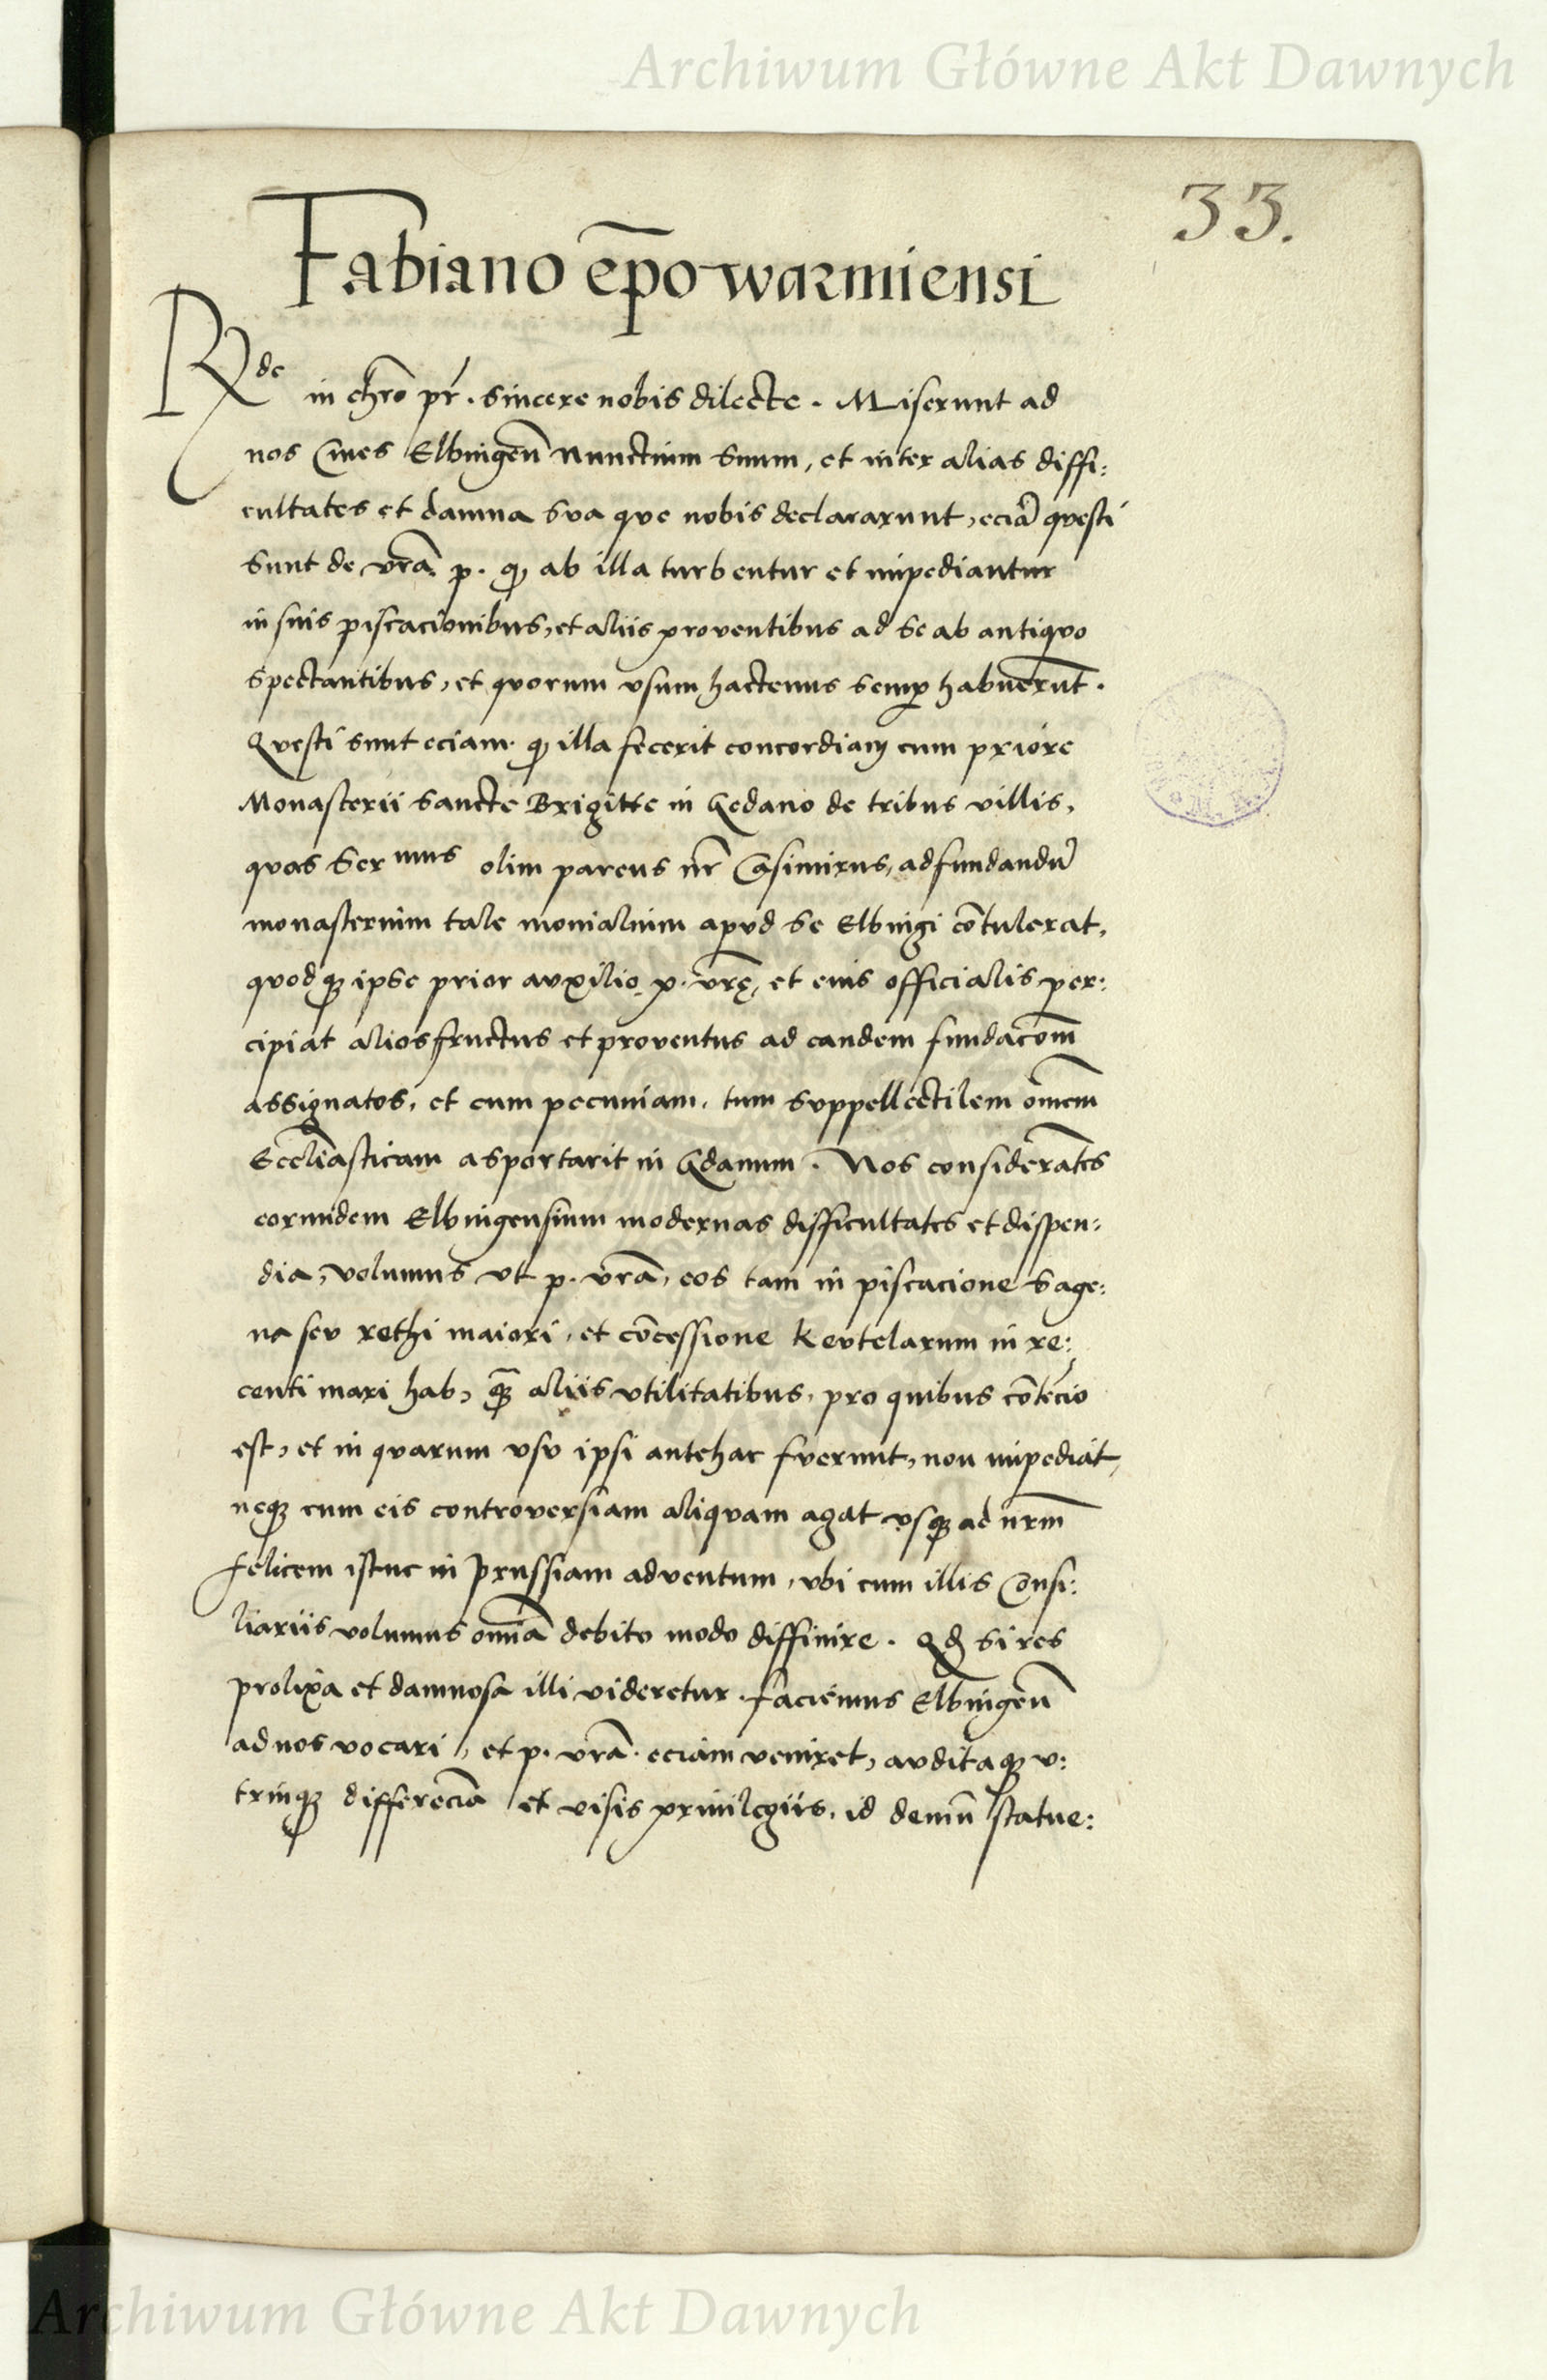 Archiwum Główne Akt Dawnych
33.
Fabiano ep̄o warmiensi
Rde in chr̄o pr̄. sincere nobis dilecte. Miserunt ad
nos Cives Elbingen̄ nunctium suum, et inter alias diffi:
cultates et damna sva qve nobis declararunt, eciā qvesti
sunt de vr̄a p. qꝫ ab illa turbentur et impediantur
in suis piscacionibus, et aliis proventibus ad se ab antiqvo
spectantibus, et qvorum vsum hactenus semp̱ habuerūt.
Qvesti sunt eciam qꝫ illa fecerit concordiam cum priore
Monasterii Sancte Brigitte in Gedano de tribus villis,
qvas Ser mus olim parens nr̄ Casimirus, ad fundandū
monasterium tale monialium apvd se Elbingi cōtulerat,
qvodqꝫ ipse prior avxilio p. vrę, et eius officialis per:
cipiat alios fructus et proventus ad eandem fundacōm̄
assignatos, et cum pecuniam, tum svppellectilem om̄em
Eccliasticam asportarit in Gdanum. Nos considerātes
eorundem Elbingensium modernas difficultates et dispen:
dia, volumus vt p. vr̄a, eos tam in piscacione sage:
na sev rethi maiori, et cōcessione kevtelarum in re:
centi mari hab, qꝫ aliis vtilitatibus, pro quibus cōtēcio
est, et in qvarum vsv ipsi antehac fverunt, non impediat,
neqꝫ cum eis controversiam aliqvam agat vsqꝫ ad nrm̄
felicem istuc in Prussiam adventum, vbi cum illis Consi:
liariis volumus omnīa debito modo diffinire. Qd si res
prolixa et damnosa illi videretur. faciemus Elbingen̄
ad nos vocari, et p. vr̄a. eciam veniret, avditaqꝫ v:
trinqꝫ differēcia et visis privilegiis, id demū statue:
Archiwum Główne Akt Dawnych